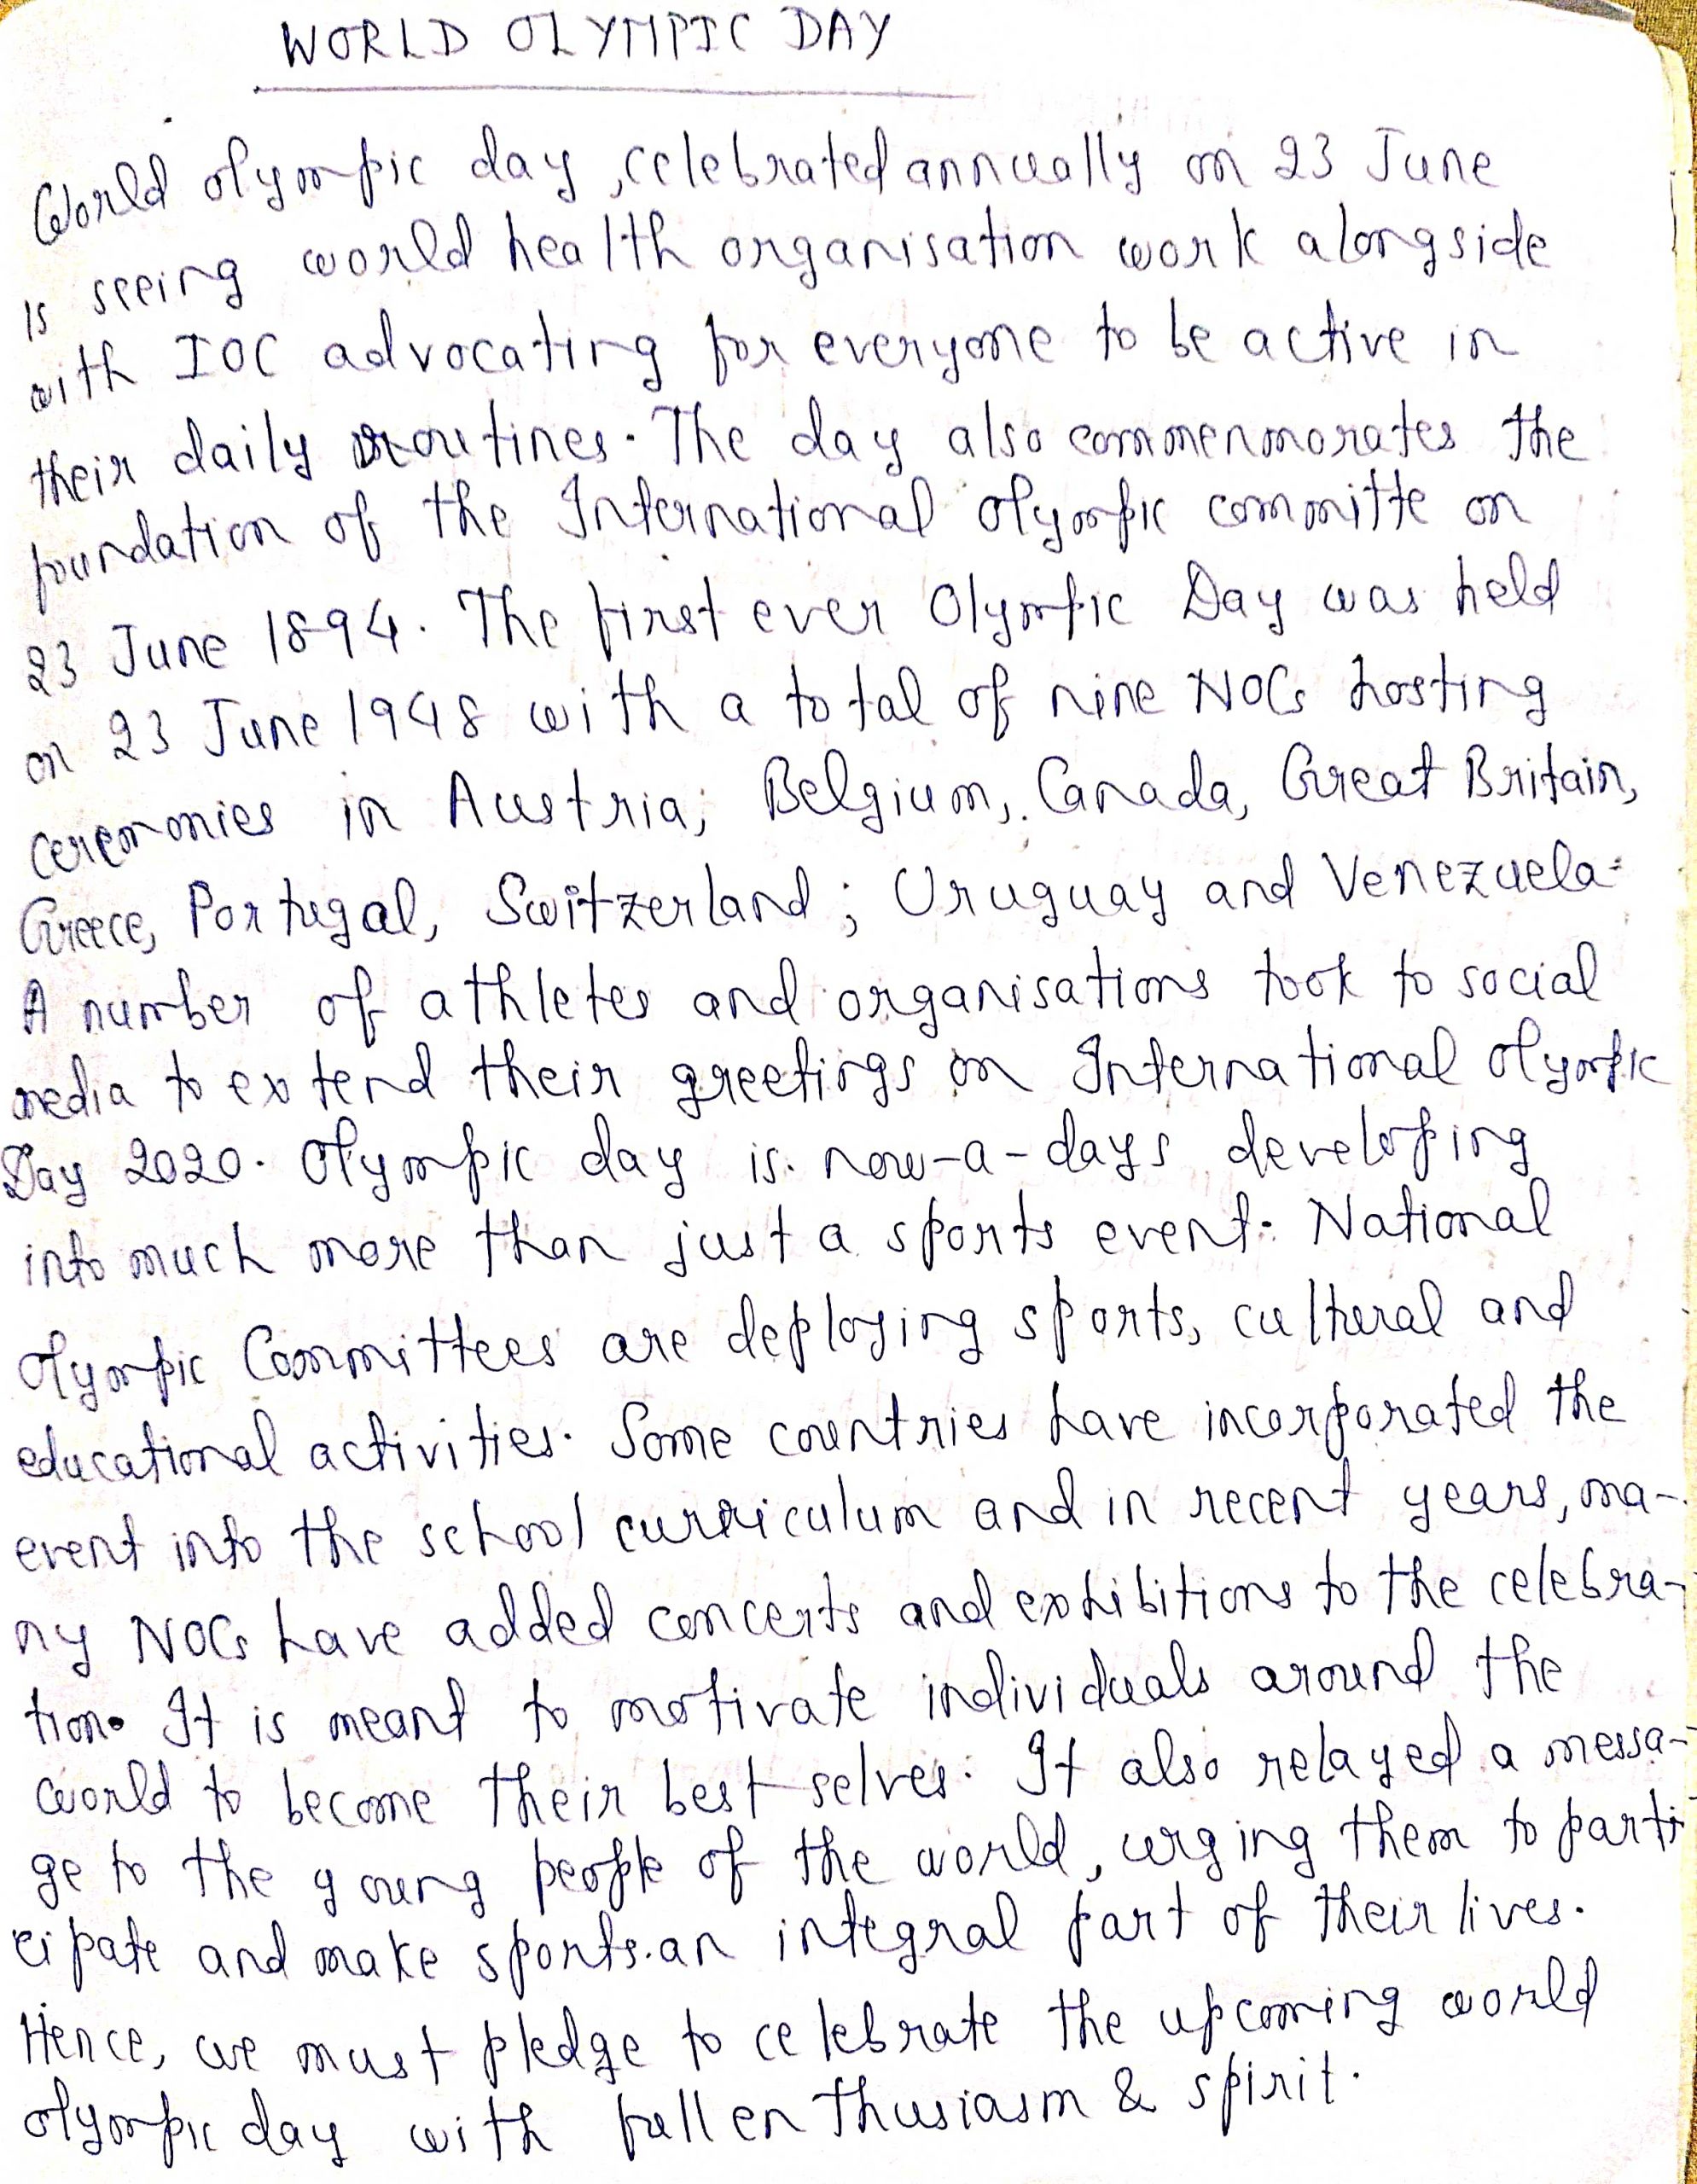 WORLD OLYMPIC DAY
World olympic day, celebrated annually on 23 June
is seeing world health organisation work alongside
with IOC advocating for everyone to be active in
their daily routines. The day also commenmorates the
foundation of the International olympic committe on
23 June 1894. The first ever Olympic Day was held
on 23 June 1948 with a total of nine NOCs hosting
ceremonies in Austria, Belgium, Canada, Great Britain,
Greece, Portugal, Switzerland; Uruguay and Venezuela.
A number of athletes and organisations took to social
media to extend their greetings on International olympic
Day 2020. Olympic day is now-a-days developing
into much more than just a sports event. National
Olympic Committees are deploying sports, cultural and
educational activities. Some countries have incorporated the
event into the school curriculum and in recent years, ma-
ny NOCs have added concerts and exhibitions to the celebra-
tion. It is meant to motivate individuals around the
world to become their best selves. It also relayed a messa-
ge to the young people of the world, urging them to parti
cipate and make sports an integral part of their lives.
Hence, we must pledge to celebrate the upcoming world
olympic day with full enthusiasm & spirit.